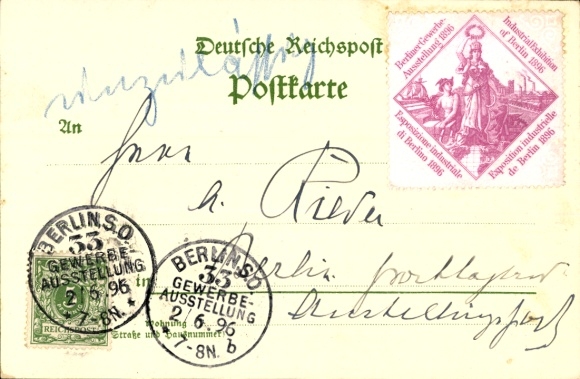 Deutsche Reichspost
Postkarte
unzulässig
An
Hern
A. Rieder
in Berlin. postlagernd
Wohnung
Straße und Hausnummer
Berliner Gewerbe-
Ausstellung 1896
Industrial Exhibition
of Berlin 1896
Esposizione industriale
di Berlino 1896
Exposition industrielle
de Berlin 1896
BERLIN S.O
33
GEWERBE-
AUSSTELLUNG
2/6.96
* 7-8N. *
REICHSPOST
BERLIN S.O
33
GEWERBE-
AUSSTELLUNG
2/6.96
* 7-8N. b